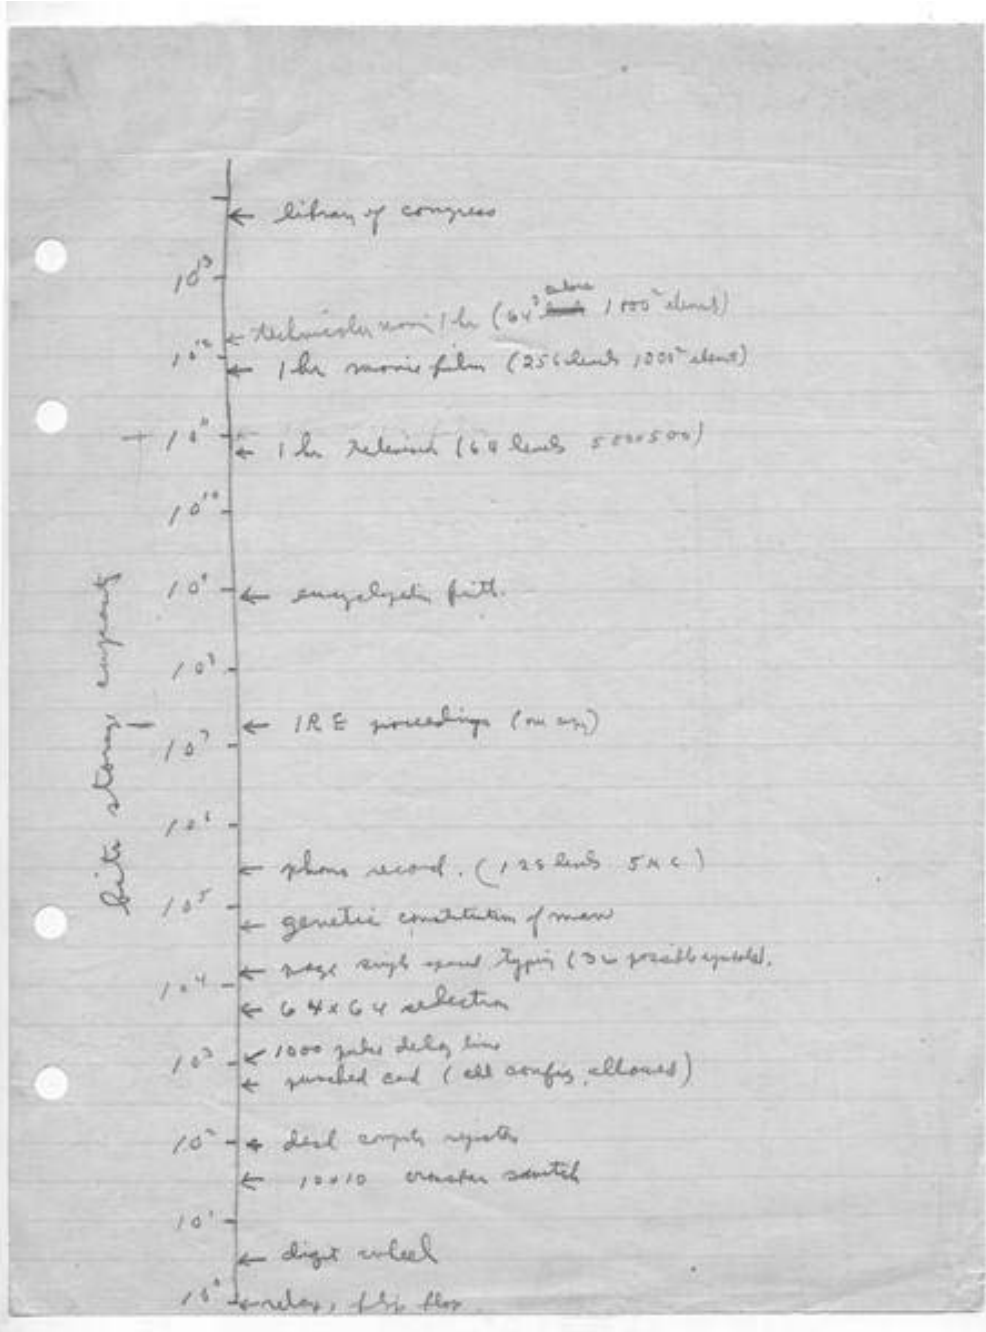 library of congress
10^13
technicolor movie 1 hr (64^3 colors 1000^2 elements)
10^12
1 hr movie film (256 levels 1000^2 elements)
10^11
1 hr television (64 levels 500x500)
10^10
10^9
encyclopedia britt.
10^8
IRE proceedings
10^7
10^6
phono record. (128 levels 5 K C)
10^5
genetic constitution of man
page single spaced typing (32 possible symbols).
10^4
64x64 selectron
1000 pulse delay line
10^3
punched card (all config. allowed)
10^2
desk
10x10 crossbar switch
10^1
digit wheel
10^0
relay, flip flop
bits storage capacity